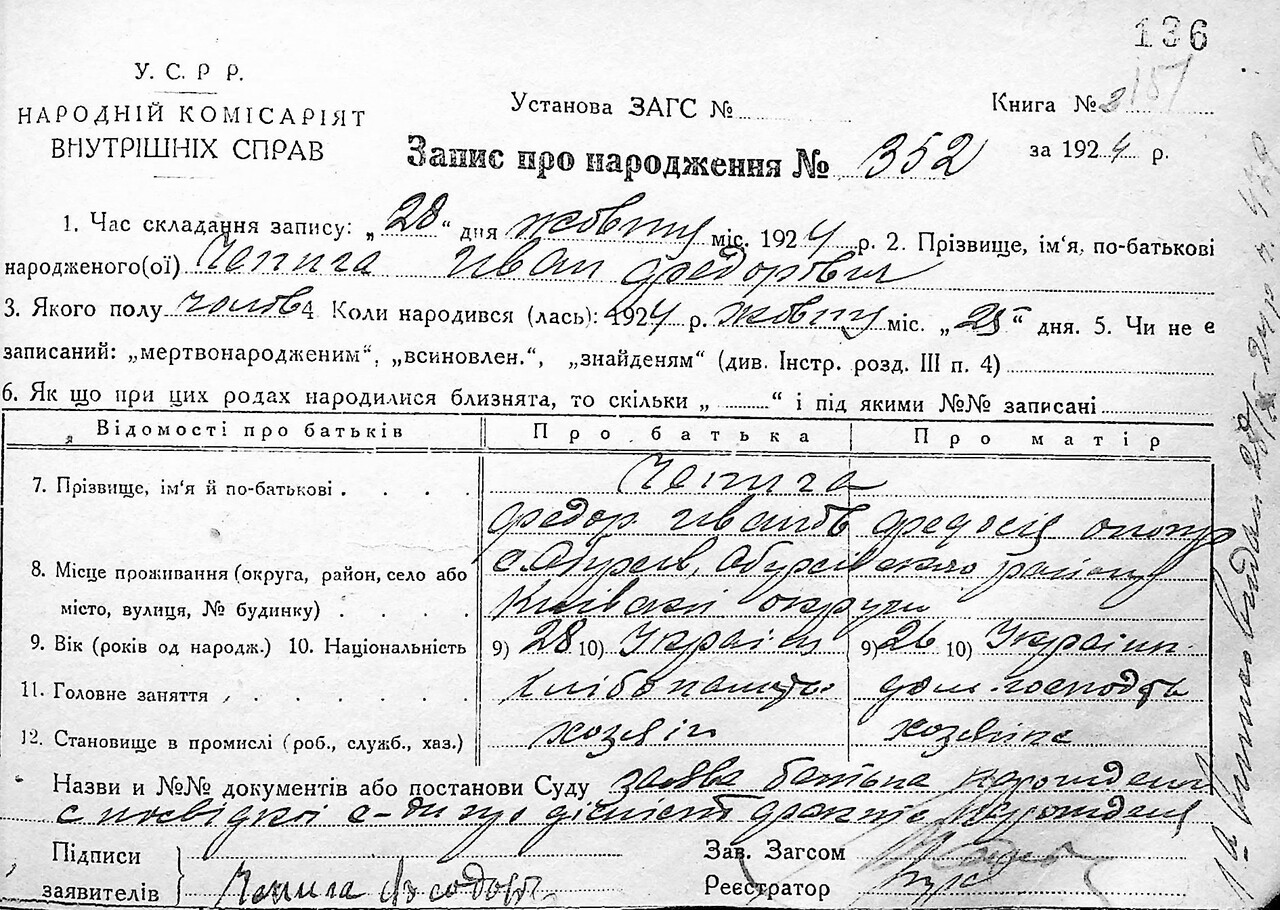 136
У. С. Р Р.
НАРОДНІЙ КОМІСАРІЯТ
ВНУТРІШНІХ СПРАВ
Установа ЗАГС №
Книга № 2 151
Запис про народження № 352
за 1924 р.
1. Час складання запису: „28" дня жовтну міс. 1924 р. 2. Прізвище, ім'я, по-батькові
народженого(ої) Чепига Иван Федорович
3. Якого полу чолов 4. Коли народився (лась): 1924 р. жовтну міс. „25" дня. 5. Чи не є
записаний: „мертвонародженим", „всиновлен.", „знайденям" (див. Інстр. розд. III п. 4)
6. Як що при цих родах народилися близнята, то скільки „ " і під якими №№ записані
Відомості про батьків Про батька Про матір
7. Прізвище, ім'я й по-батькові . . . . Чепига
Федор Иванов Федосія
8. Місце проживання (округа, район, село або с. Обухов, Обухівського району
місто, вулиця, № будинку) . . . . Київскої округи
9. Вік (років од народж.) 10. Національність 9) 28 10) Україн 9) 26 10) Україин.
11. Головне заняття . . . . . . хлібопашець дом-господар
12. Становище в промислі (роб., служб., хаз.) хозяін хозяйка
Назви и №№ документів або постанови Суду заява батька народженя
с посвідкої народженя
Підписи
заявителів Чепига
Зав. Загсом
Реєстратор